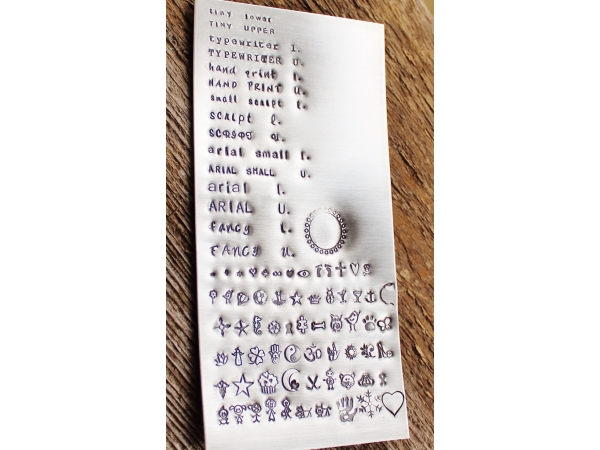 tiny lower
TINY UPPER
typewriter l.
TYPEWRITER U.
hand print l.
HAND PRINT U.
small script l.
script l.
SCRIPT U.
arial small l.
ARIAL SMALL U.
arial l.
ARIAL U.
fancy l.
FANCY U.